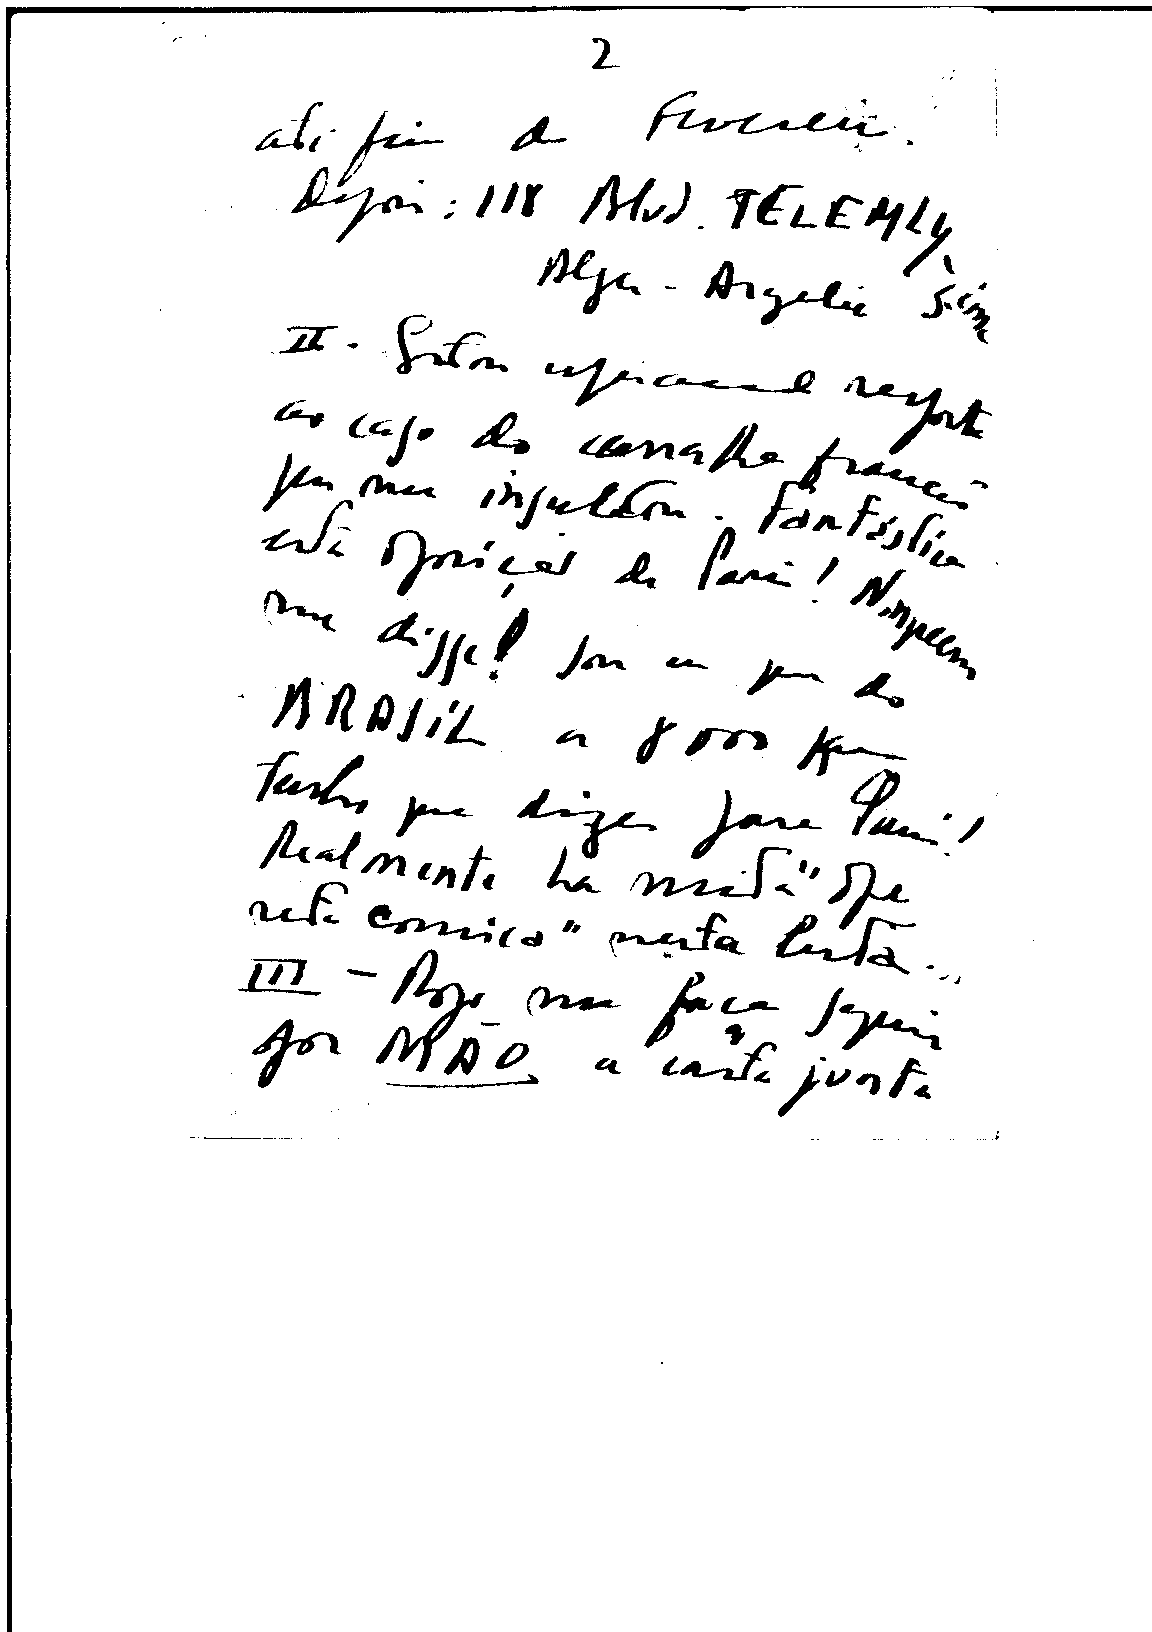 2
até fim de Fevereiro.
Depois: 118 Blvd. TELEMLY,
Alger - Argelia
II - Estou esperando resposta
ao caso do canalha francês
que me insultou. Fantástica
esta oposição de Paris! Ninguem
me disse! Sou eu que do
BRASIL a 8000 Km
tenho que dizer para Paris!
Realmente ha muita "ope
reta comica" nesta luta...
III - Rogo me faça seguir
por MÃO a carta junta